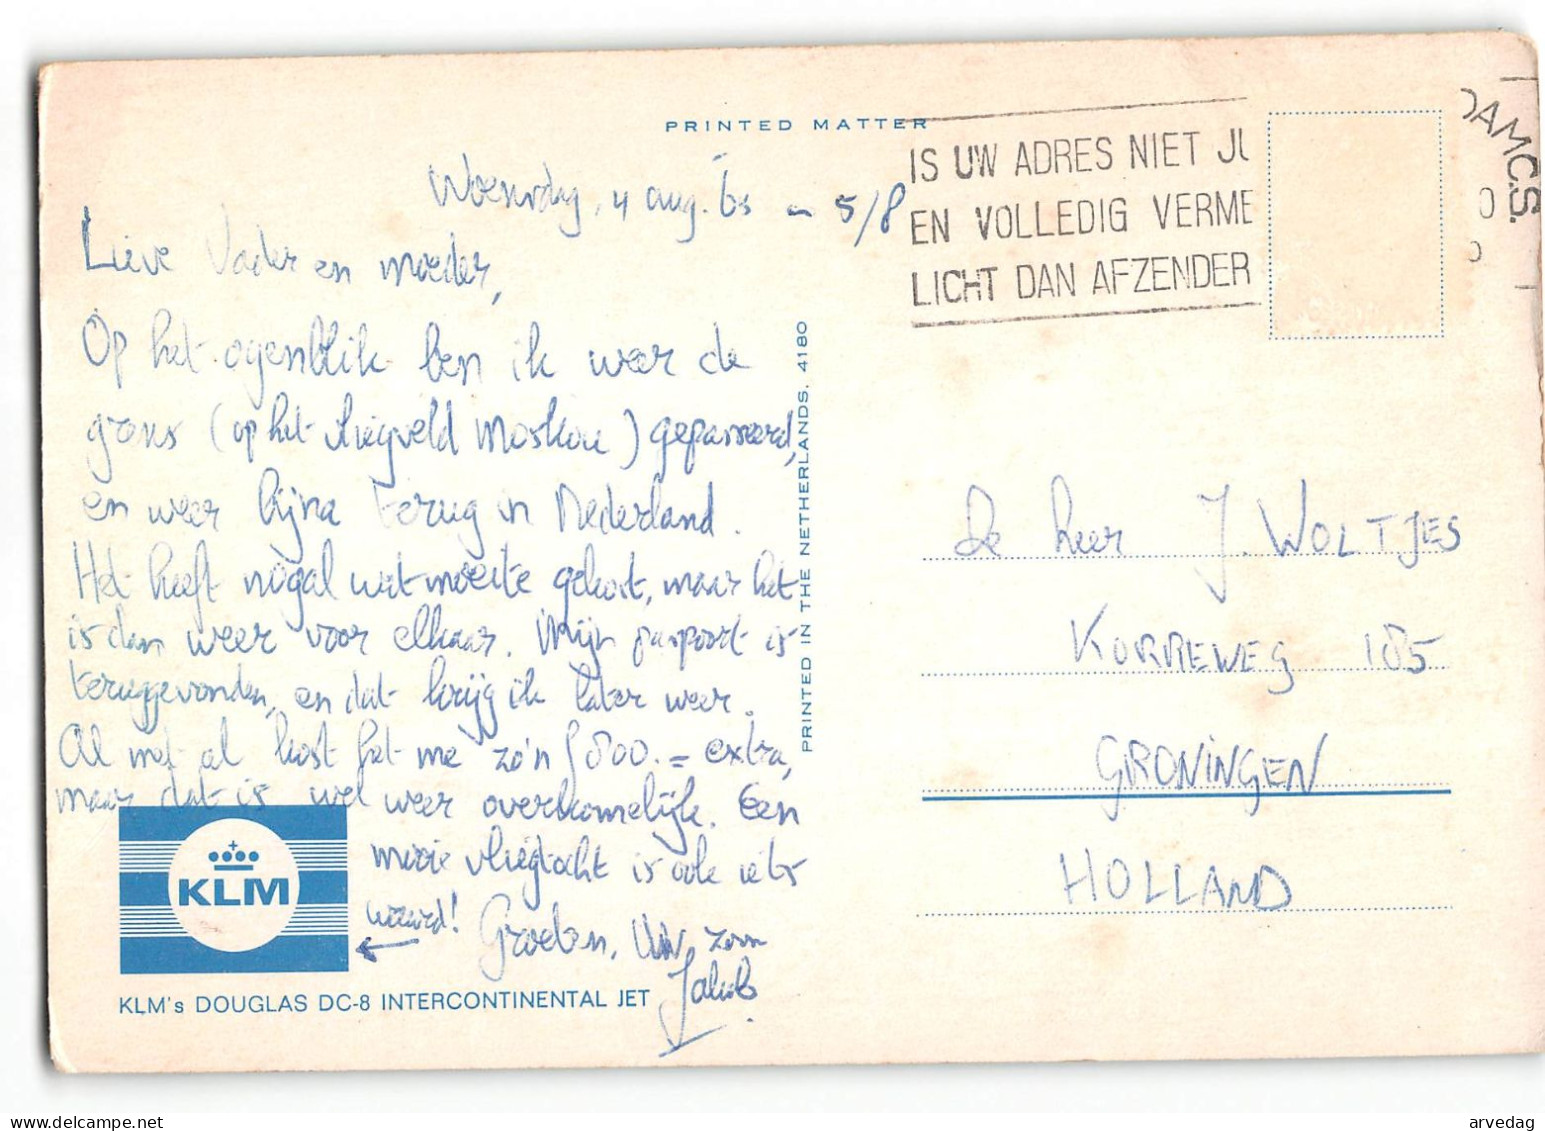 PRINTED MATTER
Woensdag, 4 aug. '65 - 5/8
Lieve Vader en moeder,
Op het ogenblik ben ik weer de
grens (op het vliegveld Moskou) gepasseerd,
en weer bijna terug in Nederland.
Het heeft nogal wat moeite gekost, maar het
is dan weer voor elkaar. Mijn paspoort is
teruggevonden, en dat krijg ik later weer.
Al met al kost het me zo'n ƒ 800.= extra,
maar dat is wel weer overkomelijk. Een
mooie vliegtocht is ook iets
waard! Groeten, Uw zoon
Jakob
KLM
KLM's DOUGLAS DC-8 INTERCONTINENTAL JET
PRINTED IN THE NETHERLANDS. 4180
IS UW ADRES NIET JU
EN VOLLEDIG VERME
LICHT DAN AFZENDER
DAMC.S.
De heer J. WOLTJES
KORREWEG 185
GRONINGEN
HOLLAND
arvedag